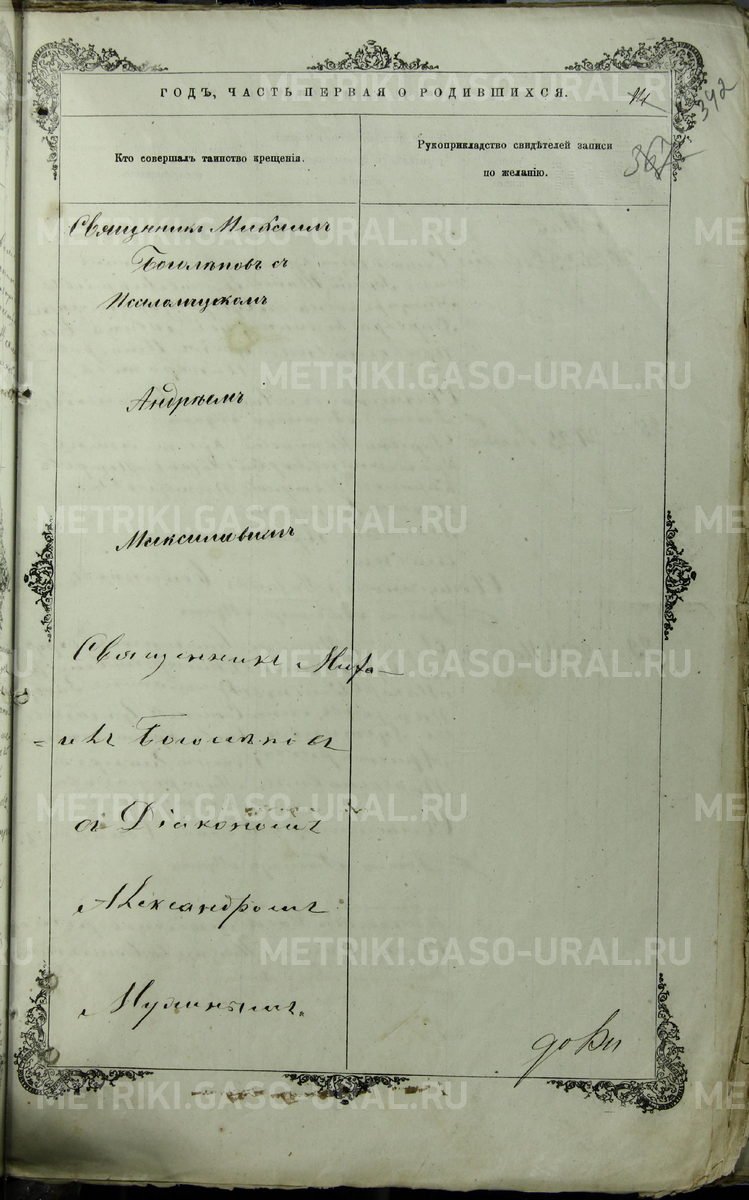 ГОДЪ, ЧАСТЬ ПЕРВАЯ О РОДИВШИХСЯ.
14
342
367
Кто совершалъ таинство крещенія.
Рукоприкладство свидѣтелей записи
по желанію.
Священникъ Михаилъ
Боголѣповъ съ
Псаломщикомъ
Андрѣемъ
Максимовымъ
Священникъ Миха-
-илъ Боголѣповъ
съ Діакономъ
Александромъ
METRIKI.GASO-URAL.RU